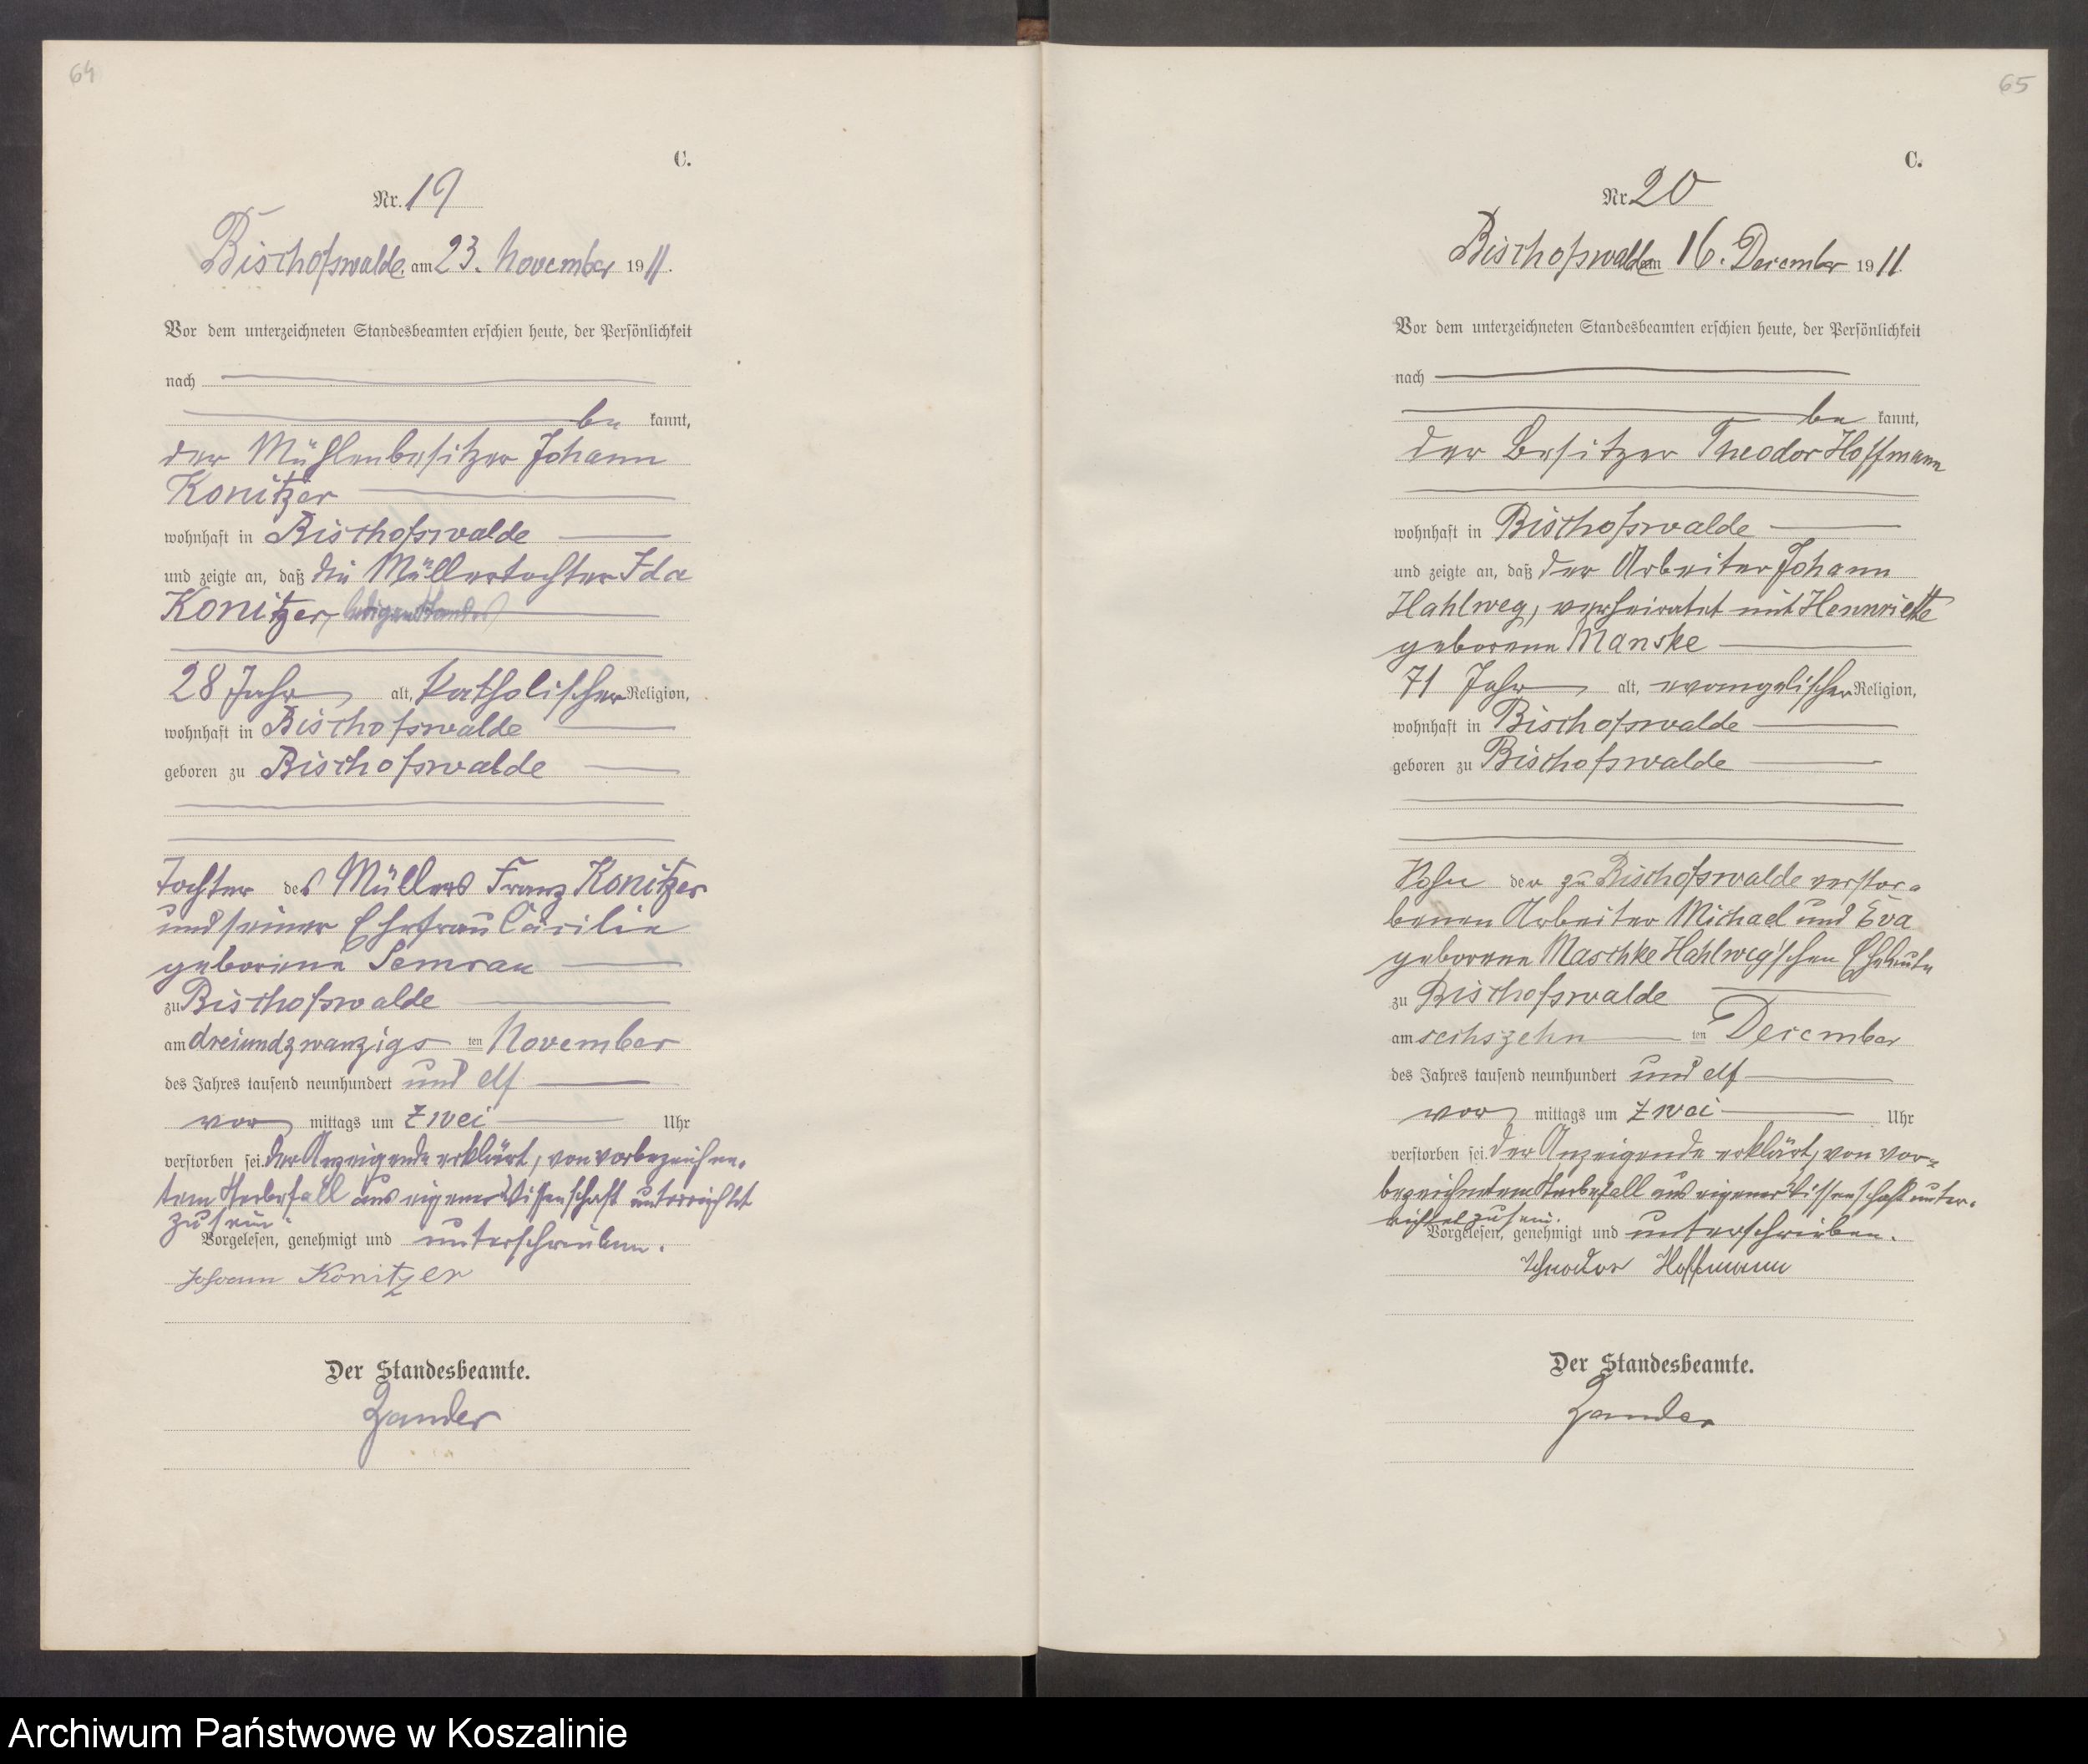 64
C.
Nr. 19
Bischofswalde am 23. November 1911.
Vor dem unterzeichneten Standesbeamten erschien heute, der Persönlichkeit
nach
be kannt,
der Mühlenbesitzer Johann
Konitzer
wohnhaft in Bischofswalde
und zeigte an, daß die Müllertochter Ida
Konitzer, ledigen Standes
28 Jahr alt, katholischer Religion,
wohnhaft in Bischofswalde
geboren zu Bischofswalde
Tochter des Müllers Franz Konitzer
und seiner Ehefrau Cäcilie
geborene Semrau
zu Bischofswalde
am dreiundzwanzigs ten November
des Jahres tausend neunhundert und elf
vor mittags um zwei Uhr
verstorben sei. Der Anzeigende erklärt, von vorbezeichne-
tem Sterbefall aus eigener Wissenschaft unterrichtet
zu sein.
Vorgelesen, genehmigt und unterschrieben.
Johann Konitzer
Der Standesbeamte.
Zander
65
C.
Nr. 20
Bischofswalde am 16. Dezember 1911.
Vor dem unterzeichneten Standesbeamten erschien heute, der Persönlichkeit
nach
be kannt,
der Besitzer Theodor Hoffmann
wohnhaft in Bischofswalde
und zeigte an, daß der Arbeiter Johann
Hahlweg, verheiratet mit Hennriette
geborene Manske
71 Jahr alt, evangelischer Religion,
wohnhaft in Bischofswalde
geboren zu Bischofswalde
Sohn der zu Bischofswalde verstor-
benen Arbeiter Michael und Eva
geborene Maschke Hahlweg'schen Eheleute
zu Bischofswalde
am sechszehn ten Dezember
des Jahres tausend neunhundert und elf
vor mittags um zwei Uhr
verstorben sei. Der Anzeigende erklärt, von vor-
bezeichnetem Sterbefall aus eigener Wissenschaft unter-
richtet zu sein.
Vorgelesen, genehmigt und unterschrieben.
Theodor Hoffmann
Der Standesbeamte.
Zander
Archiwum Państwowe w Koszalinie